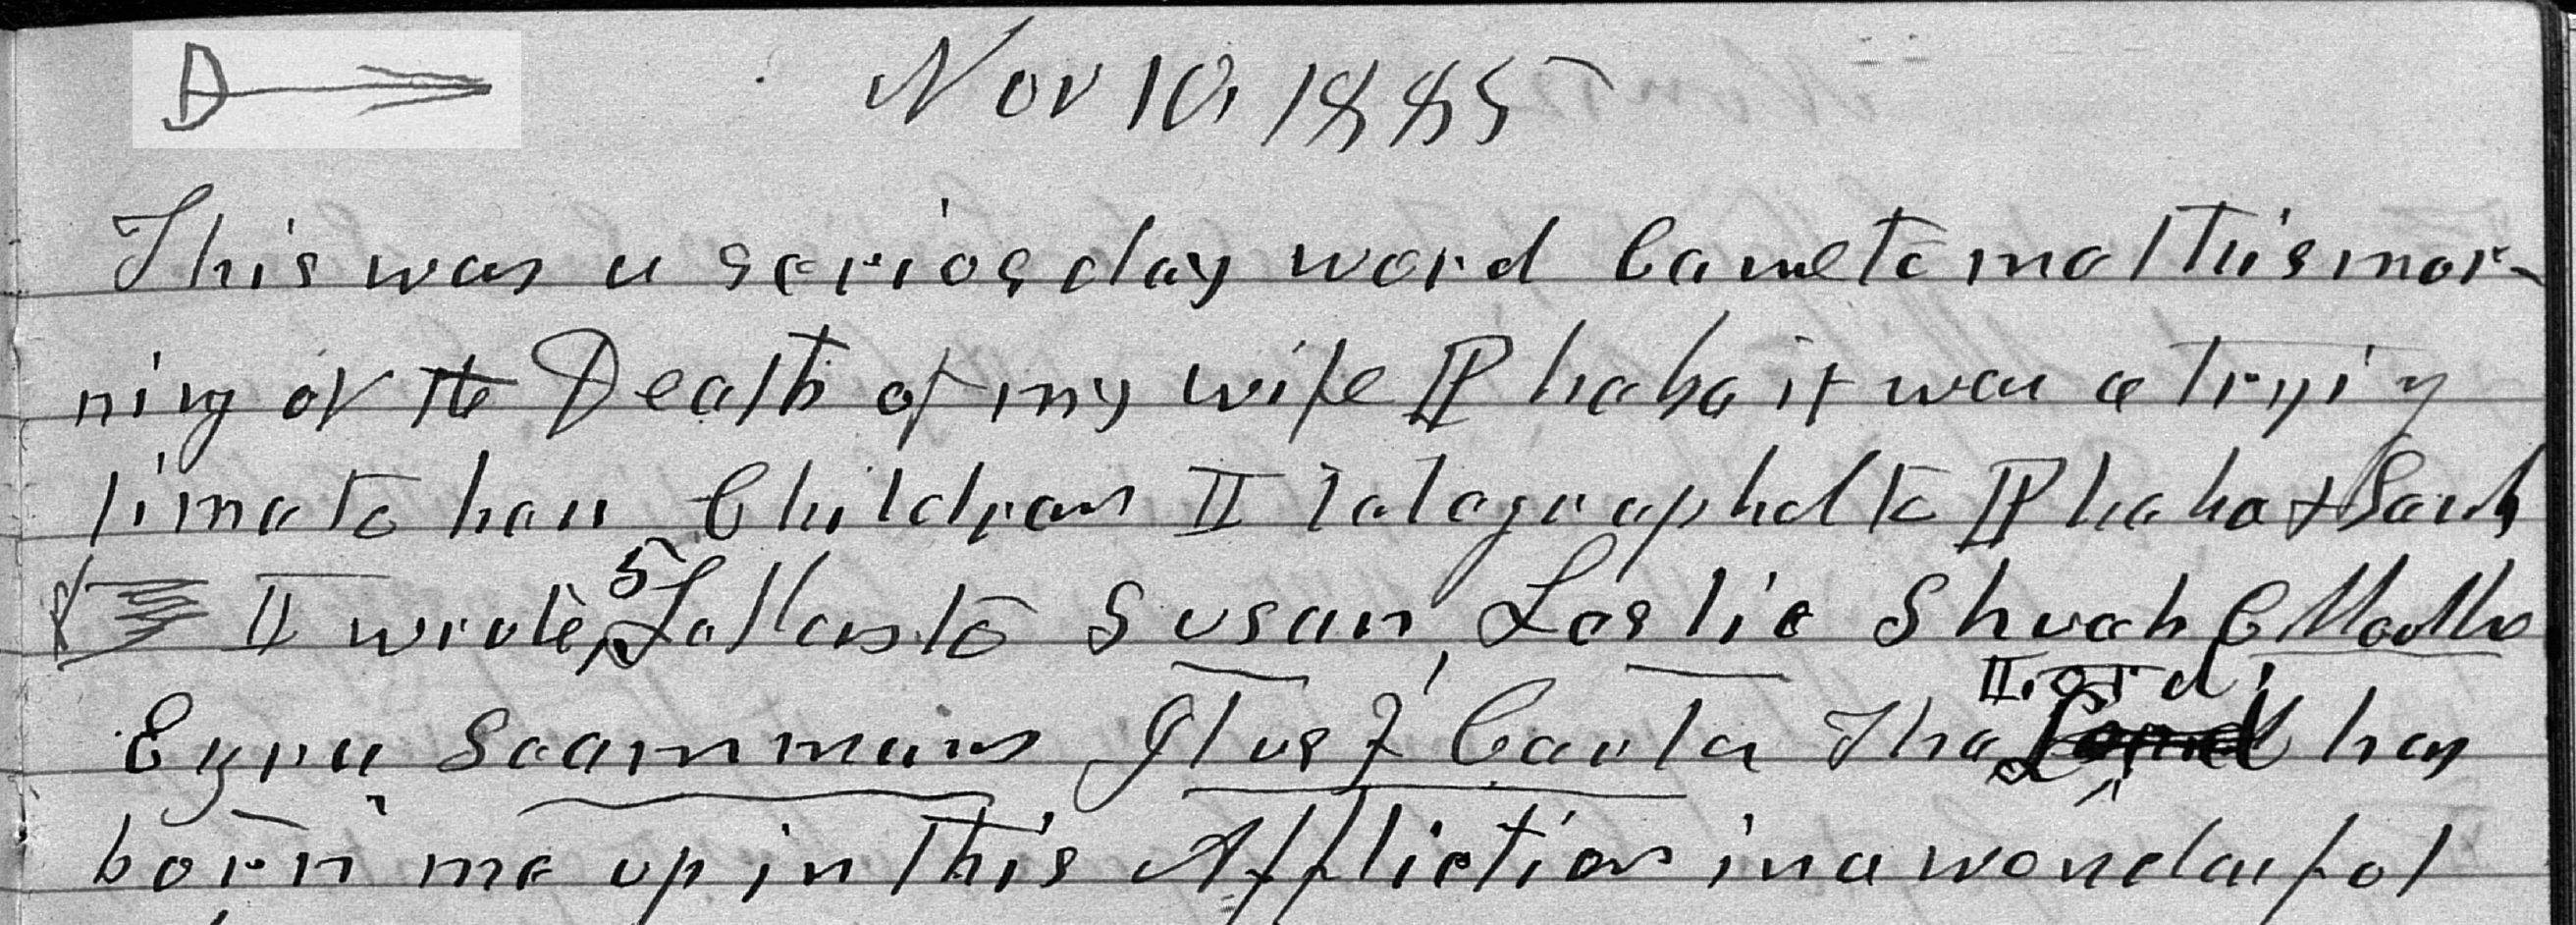 D
Nov 10, 1885
This was a serios day word Came to me this mor-
ning of the Death of my wife Phebe it was a trying
time to her Children I telegraphed to Phebe + Sarah
I wrote 5 Letters to Susan, Leslie Shuah C
Ezra Seammans Card The Lord has
born me up in this Affliction in a wonderfol